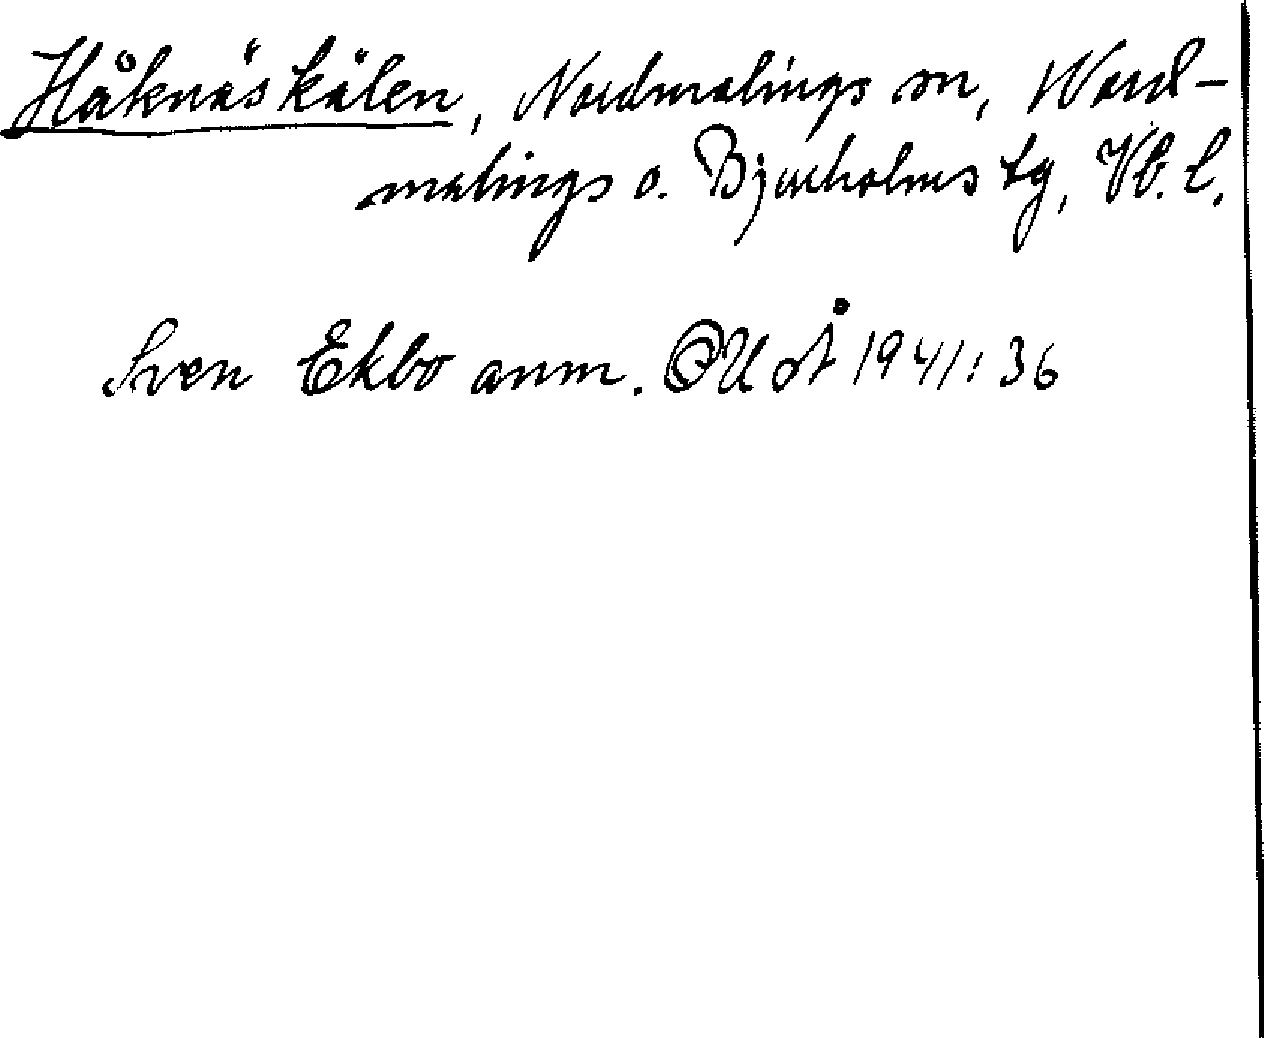 Håknäskälen, Nordmalings sn, Nord-
malings o. Bjurholms tg, Vb. l.
Sven Ekbo anm. OUoÅ 1941:36